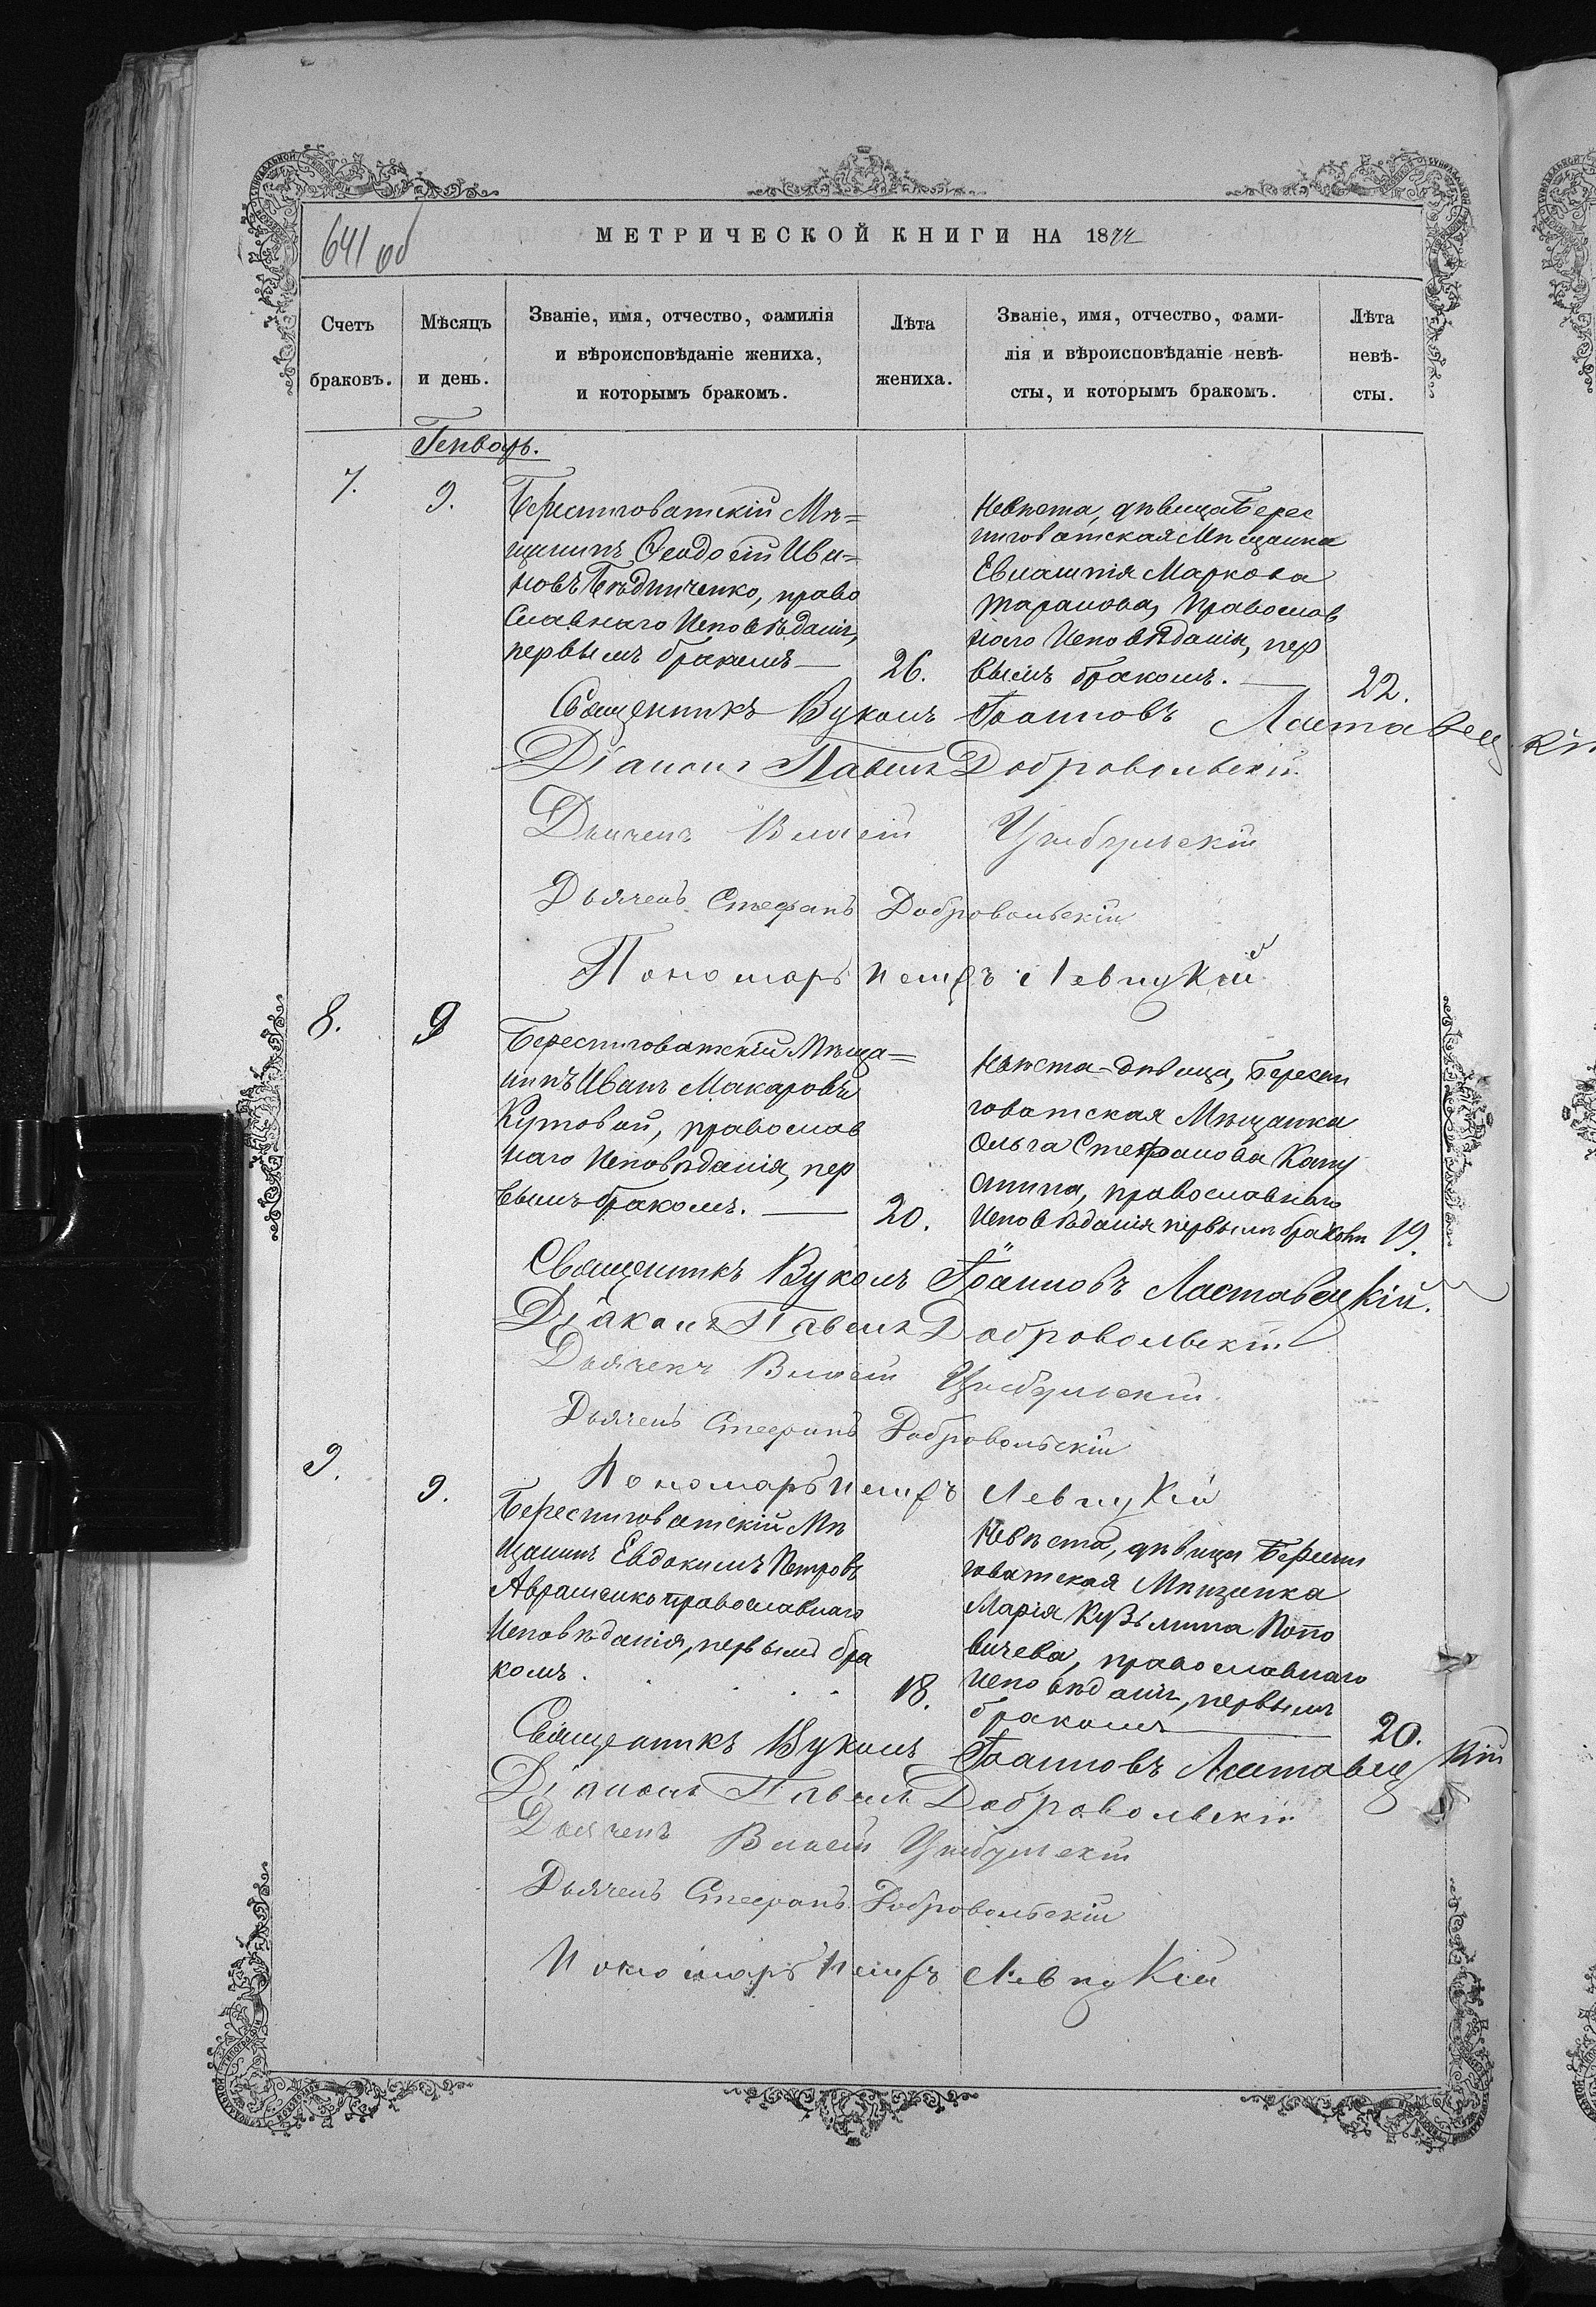 641 об
МЕТРИЧЕСКОЙ КНИГИ НА 1872
Счетъ
браковъ.
Мѣсяцъ
и день.
Званіе, имя, отчество, фамилія
и вѣроисповѣданіе жениха,
и которымъ бракомъ.
Лѣта
жениха.
Званіе, имя, отчество, фами-
лія и вѣроисповѣданіе невѣ-
сты, и которымъ бракомъ.
Лѣта
невѣ-
сты.
Генварь.
7.
9.
Берестиговатскій Мѣ=
щанинъ Ѳеодосій Ива=
новъ Бѣдниченко, право
славнаго Исповѣданія,
первымъ бракомъ —
26.
Невѣста, дѣвица Берес
тиговатская Мѣщанка
Маркова
Таранова, Православ
наго Исповѣданія, пер
вымъ бракомъ. —
22.
Священникъ Вуколъ Іоанновъ Ластавецкій
Діаконъ Павелъ Добровольскій
Дьячекъ Власій Цыбульскій
Дьячекъ Стефанъ Добровольскій
Пономарь Петръ Левицкій
8.
9
Берестиговатскій Мѣща=
нинъ Иванъ Макаровъ
Кутовый, православ
наго Исповѣданія, пер
вымъ бракомъ. —
20.
Невѣста-дѣвица, Берести
говатская Мѣщанка
Ольга Стефанова Капу
стина, православнаго
Исповѣданія первымъ бракомъ
19.
Священникъ Вуколъ Іоанновъ Ластавецкій.
Діаконъ Павелъ Добровольскій
Дьячекъ Власій Цыбульскій
Дьячекъ Стефанъ Добровольскій
Пономарь Петръ Левицкій
9.
9.
Берестиговатскій Мѣ
щанинъ Евдокимъ Петровъ
Авраменко православнаго
Исповѣданія, первымъ бра
комъ. . . .
18.
Невѣста, дѣвица Берести
говатская Мѣщанка
Марія Кузьмина Попо
вичева, православнаго
Исповѣданія, первымъ
бракомъ —
20.
Священникъ Вуколъ Іоанновъ Ластавецкій
Діаконъ Павелъ Добровольскій
Дьячекъ Власій Цыбульскій
Дьячекъ Стефанъ Добровольскій
Пономарь Петръ Левицкій